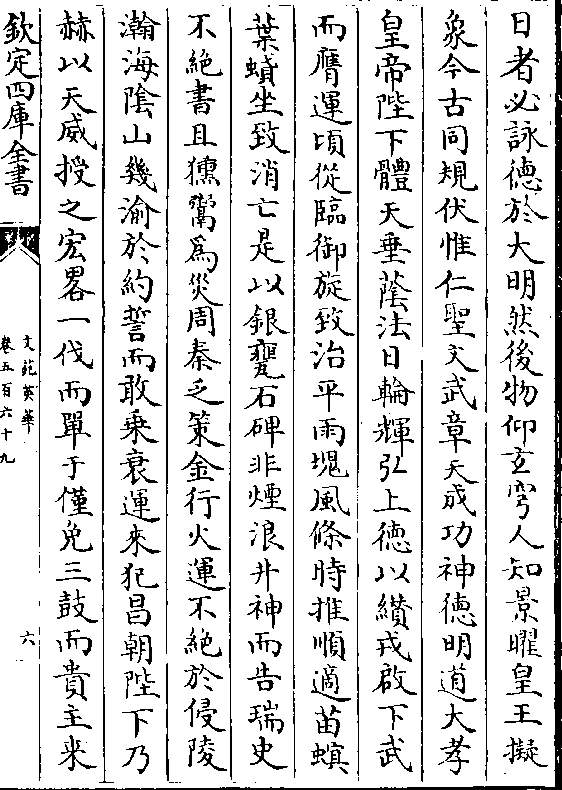 日者必詠德於大明然後物仰玄穹人知景曜皇王擬
象今古同規伏惟仁聖文武章天成功神德明道大孝
皇帝陛下體天垂蔭法日輪輝弘上德以纘戎啟下武
而膺運頃從臨御旋致治平雨塊風條時推順適苗螟
葉蟦坐致消亡是以銀甕石碑非煙浪井神而告瑞史
不絶書且獯鬻為災周秦乏策金行火運不絶於侵陵
瀚海陰山幾渝於約誓而敢乘衰運來犯昌朝陛下乃
赫以天威授之宏畧一伐而單于僅免三鼓而貴主来
欽定四庫全書
文苑英華
卷五百六十九
六